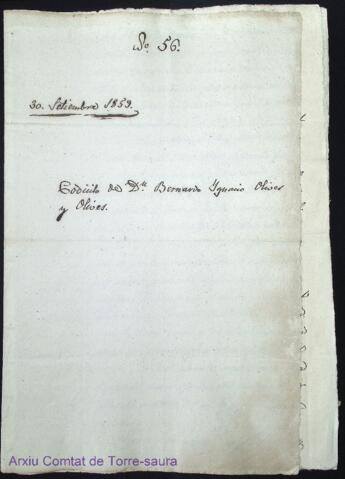 No. 56.
30. Setiembre 1853.
Codicilo de Dn. Bernardo Ignacio Olives
y Olives.
Arxiu Comtat de Torre-saura